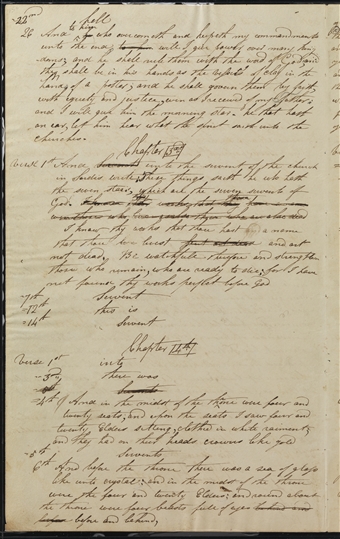 22nd shall
26 And to him who overcometh and keepeth my commandments
unto the end, will I give power over many king
doms; and he shall rule them with the word of God; and
they shall be in his hands as the vessels of clay in the
hands of a potter; and he shall govern them by faith,
with equity and justice, even as I received of my Father;
and I will give him the morning star. he that hath
an ear, let him hear what the spirit saith unto the
churches.
Chapter 3rd
Verse 1st And unto the servent of the church
in Sardis, write; These things, saith he who hath
the seven stars, which are the seven servents of
God.
I know thy works that thou hast a name
that thou livest and art
not dead, Be watchful therefore and strengthen
those who remain, who are ready to die; for I have
not found thy works perfect before God
7th Servent
12th this is
14th Servent
Chapter 4th
Verse 1st into
3rd there was
4th And in the midst of the throne were four and
twenty seats; and upon the seats I saw four and
twenty Elders sitting, clothed in white raiment;
and they had on their heads crowns like gold
5th Servents
6th And before the throne there was a sea of glass
like unto crystal; and in the midst of the throne
were the four and twenty Elders; and round about
the throne were four beasts full of eyes
before and behind,